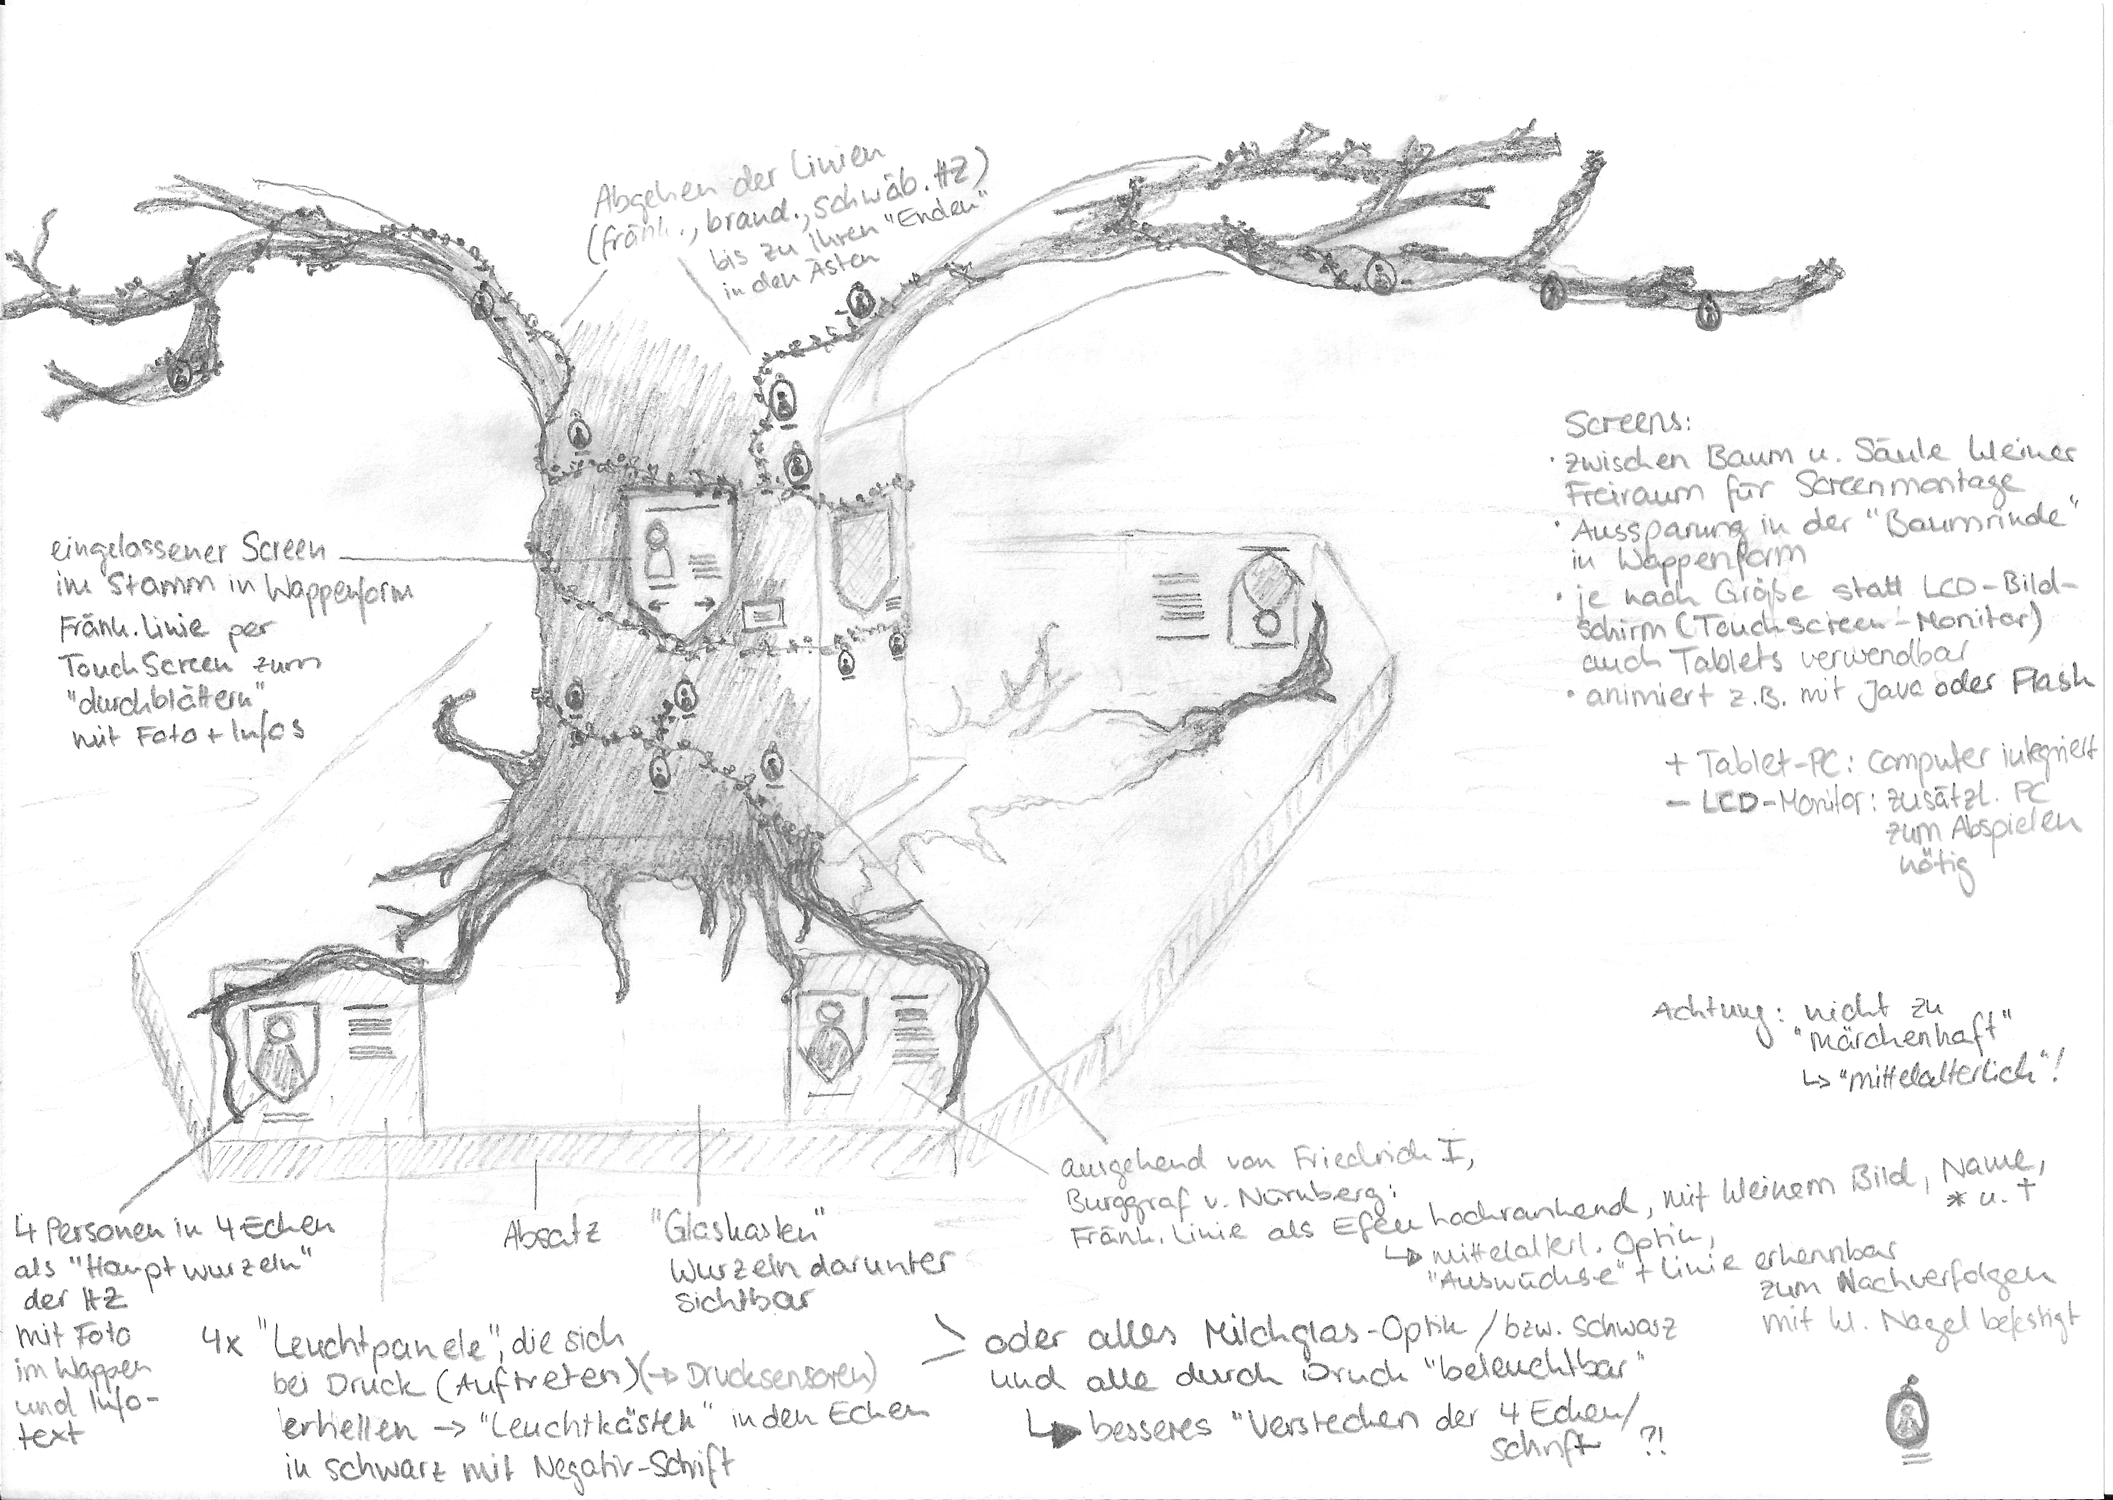 Abgehen der Linien
(fränk., brand., schwäb. HZ)
bis zu ihren "Enden"
in den Ästen
eingelassener Screen
im Stamm in Wappenform
Fränk. Linie per
TouchScreen zum
"durchblättern"
mit Foto + Infos
Screens:
· zwischen Baum u. Säule kleiner
Freiraum für Screenmontage
· Aussparung in der "Baumrinde"
in Wappenform
· je nach Größe statt LCD-Bild-
schirm (Touchscreen-Monitor)
auch Tablets verwendbar
· animiert z.B. mit Java oder Flash
+ Tablet-PC: Computer integriert
- LCD-Monitor: zusätzl. PC
zum Abspielen
nötig
Achtung: nicht zu
"märchenhaft"
↳ "mittelalterlich"!
ausgehend von Friedrich I,
Burggraf v. Nürnberg:
Fränk. Linie als Efeu hochrankend, mit kleinem Bild, Name,
* u. †
↳ mittelalterl. Optik,
"Auswüchse" + Linie erkennbar
zum Nachverfolgen
mit kl. Nagel befestigt
4 Personen in 4 Ecken
als "Hauptwurzeln"
der HZ
mit Foto
im Wappen
und Info-
text
Absatz
"Glaskasten"
Wurzeln darunter
sichtbar
4x "Leuchtpanele", die sich
bei Druck (Auftreten) (→ Drucksensoren)
erhellen → "Leuchtkästen" in den Ecken
in schwarz mit Negativ-Schrift
oder alles Milchglas-Optik / bzw. schwarz
und alle durch Druck "beleuchtbar"
↳ besseres "Verstecken der 4 Ecken/
schrift ?!